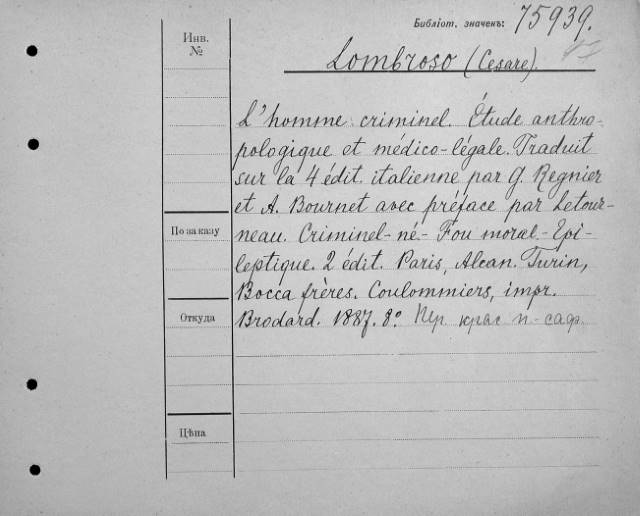 Библіот. значенъ: 75939.
Инв.
№
Lombroso (Cesare).
L'homme criminel. Étude anthro-
pologique et médico-légale. Traduit
sur la 4 édit. italienne par G. Regnier
et A. Bournet avec préface par Letour-
neau. Criminel-né-Fou moral.-Epi-
leptique. 2 édit. Paris, Alcan. Turin,
Bocca frères. Coulommiers, impr.
Brodard. 1887. 8º. Пер. крас п-саф.
По заказу
Откуда
Цѣна